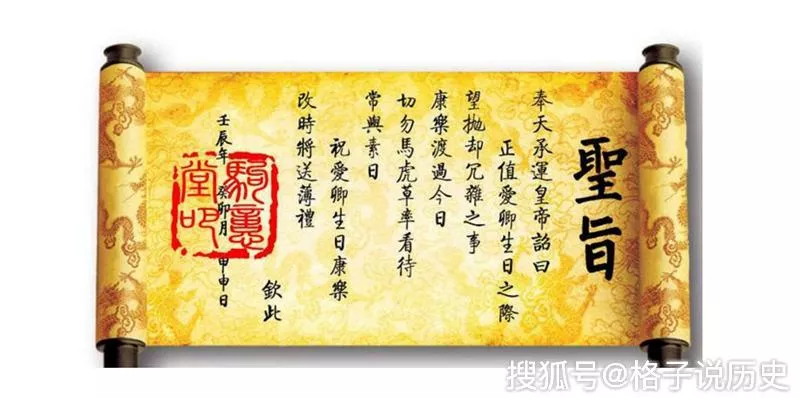 聖旨
奉天承運皇帝詔曰
正值愛卿生日之際
望抛却冗雜之事
康樂渡過今日
切勿馬虎草率看待
常與素日
祝愛卿生日康樂
改時將送薄禮
欽此
壬辰年 癸卯月 甲申日
搜狐号@格子说历史